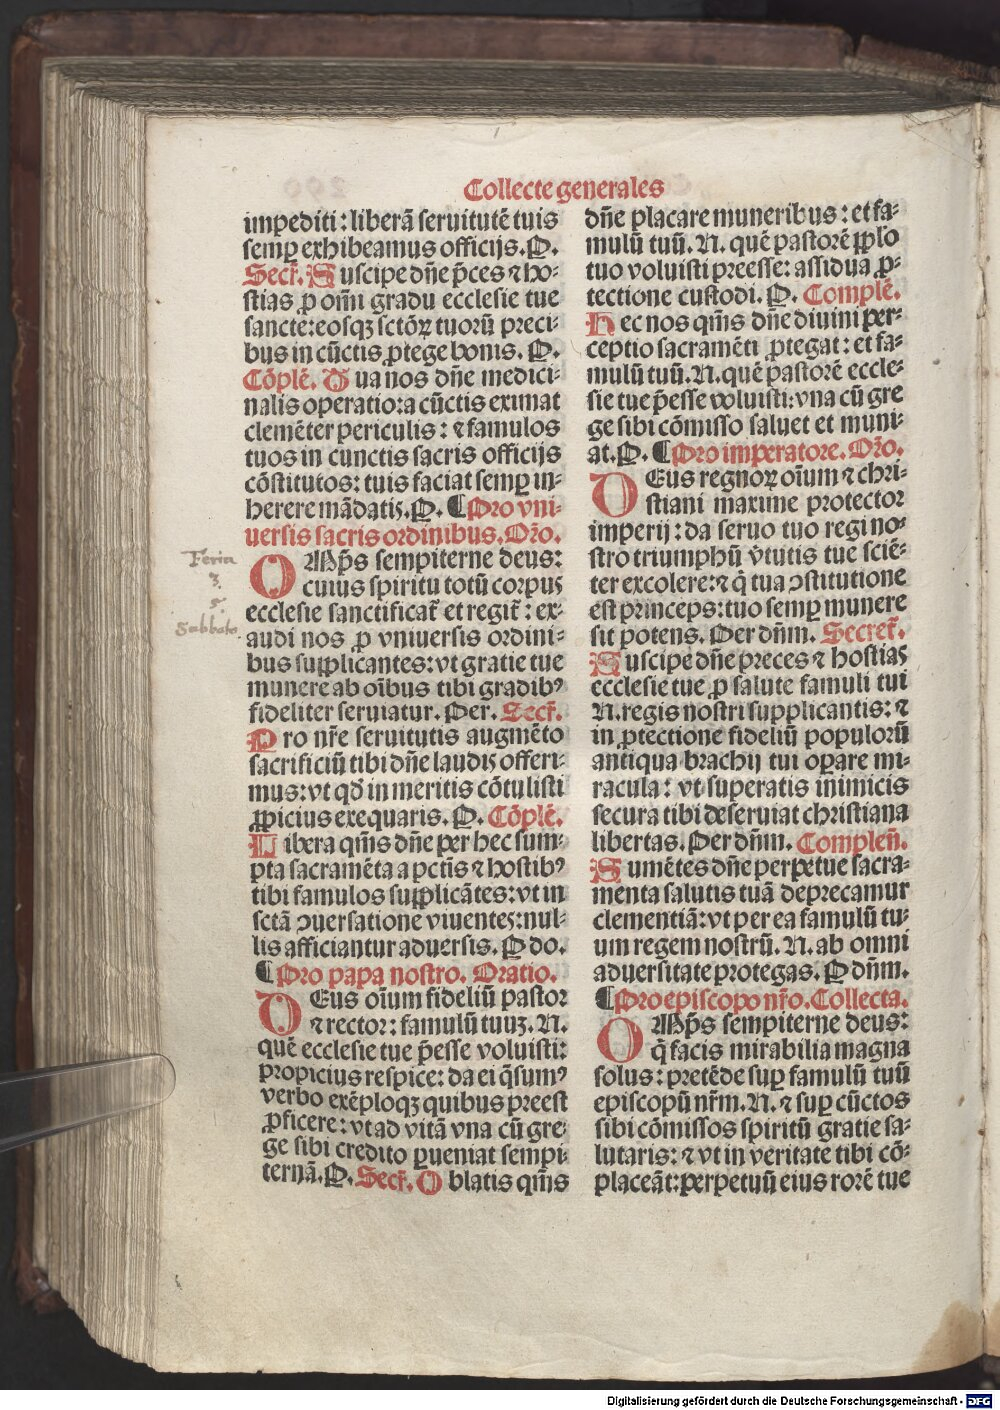 Collecte generales
impediti: liberã seruitutẽ tuis
semꝑ exhibeamus officijs. P.
Secr̃. Suscipe dñe p̃ces ⁊ ho-
stias ꝓ om̃i gradu ecclesie tue
sancte: eosqꝫ sctõꝝ tuorũ preci-
bus in cũctis ꝓtege bonis. P.
Cõplẽ. Tua nos dñe medici-
nalis operatio: a cũctis eximat
clemẽter periculis: ⁊ famulos
tuos in cunctis sacris officijs
cõstitutos: tuis faciat semꝑ in-
herere mãdatis. P. ¶ Pro vni-
uersis sacris ordinibus. Or̃o.
OMp̃s sempiterne deus:
cuius spiritu totũ corpus
ecclesie sanctificat̃ et regit̃: ex-
audi nos ꝓ vniuersis ordini-
bus supplicantes: vt gratie tue
munere ab oĩbus tibi gradibꝰ
fideliter seruiatur. Per. Secr̃.
Pro nr̃e seruitutis augmẽto
sacrificiũ tibi dñe laudis offeri-
mus: vt qđ in meritis cõtulisti
ꝓpicius exequaris. P. Cõplẽ.
Libera qm̃s dñe per hec sum-
pta sacramẽta a pctĩs ⁊ hostibꝰ
tibi famulos supplicãtes: vt in
sctã ꝯuersatione viuentes: nul-
lis afficiantur aduersis. P do.
¶ Pro papa nostro. Oratio.
DEus oĩum fideliũ pastor
⁊ rector: famulũ tuuꝫ. N.
quẽ ecclesie tue p̃esse voluisti:
propicius respice: da ei q̃sumꝰ
verbo exẽploqꝫ quibus preest
ꝓficere: vt ad vitã vna cũ gre-
ge sibi credito ꝑueniat sempi-
ternã. P. Secr̃. Oblatis qm̃s
dñe placare muneribus: et fa-
mulũ tuũ. N. quẽ pastorẽ ꝓplo
tuo voluisti preesse: assidua ꝓ-
tectione custodi. P. Complẽ.
Hec nos qm̃s dñe diuini per-
ceptio sacramẽti ꝓtegat: et fa-
mulũ tuũ. N. quẽ pastorẽ eccle-
sie tue p̃esse voluisti: vna cũ gre
ge sibi cõmisso saluet et muni-
at. P. ¶ Pro imperatore. Or̃o.
DEus regnoꝝ oĩum ⁊ chri-
stiani maxime protector
imperij: da seruo tuo regi no-
stro triumphũ v̓tutis tue sciẽ-
ter excolere: ⁊ q̃ tua ꝯstitutione
est princeps: tuo semꝑ munere
sit potens. Per dñm. Secret̃.
Suscipe dñe preces ⁊ hostias
ecclesie tue ꝓ salute famuli tui
N. regis nostri supplicantis: ⁊
in ꝓtectione fideliũ populorũ
antiqua brachij tui oꝑare mi-
racula: vt superatis inimicis
secura tibi deseruiat christiana
libertas. Per dñm. Compleñ.
Sumẽtes dñe perpetue sacra-
menta salutis tuã deprecamur
clementiã: vt per ea famulũ tu-
um regem nostrũ. N. ab omni
aduersitate protegas. P dñm.
¶ Pro episcopo nr̃o. Collecta.
OMp̃s sempiterne deus:
q̃ facis mirabilia magna
solus: pretẽde suꝑ famulũ tuũ
episcopũ nr̃m. N. ⁊ suꝑ cũctos
sibi cõmissos spiritũ gratie sa-
lutaris: ⁊ vt in veritate tibi cõ-
placeãt: perpetuũ eius rorẽ tue
Feria
3.
5.
Sabbato
Digitalisierung gefördert durch die Deutsche Forschungsgemeinschaft - DFG